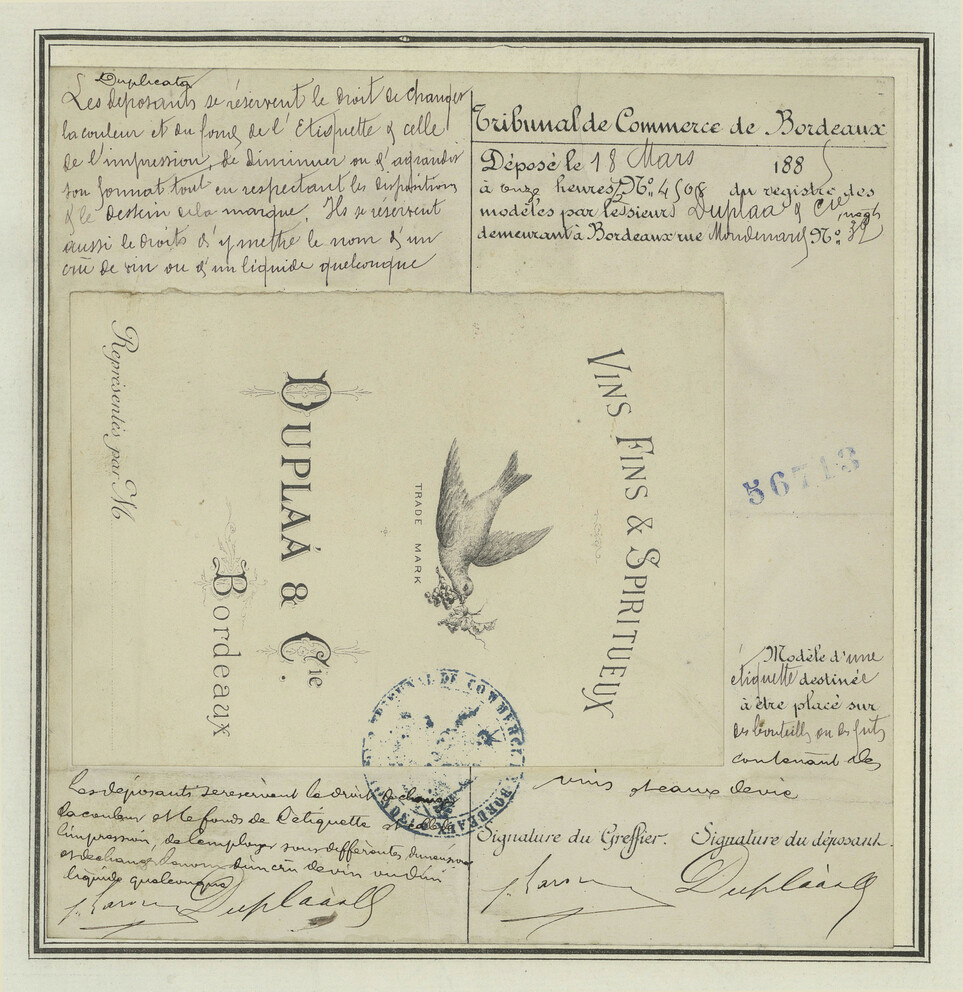 Duplicata
Les déposants se réservent le droit de changer
la couleur et du fond de l'Etiquette & celle
de l'impression, de diminuer ou d'agrandir
son format tout en respectant les dispositions
& le dessin de la marque. Ils se réservent
aussi le droits d'y mettre le nom d'un
crû de vin ou d'un liquide quelconque
Tribunal de Commerce de Bordeaux
Déposé le 18 Mars 1885
à onze heures, No. 4508 du registre des
modèles par les sieurs Duplaà & Cie
demeurant à Bordeaux rue No. 39
VINS FINS & SPIRITUEUX
TRADE MARK
DUPLAÁ & Cie.
Bordeaux
Représentés par M
56713
Modèle d'une
étiquette destinée
à être placé sur
des bouteilles ou des fûts
contenant des
vins et eaux de vie
TRIBUNAL DE COMMERCE
BORDEAUX
Les déposants se réservent le droit de changer
la couleur et le fonds de l'étiquette et celle
l'impression, de l'employer sous différentes dimensions
et de changer le nom d'un cru de vin ou d'un
liquide quelconque
Duplaà & Cie
Signature du Greffier. Signature du déposant.
Duplaà & Cie